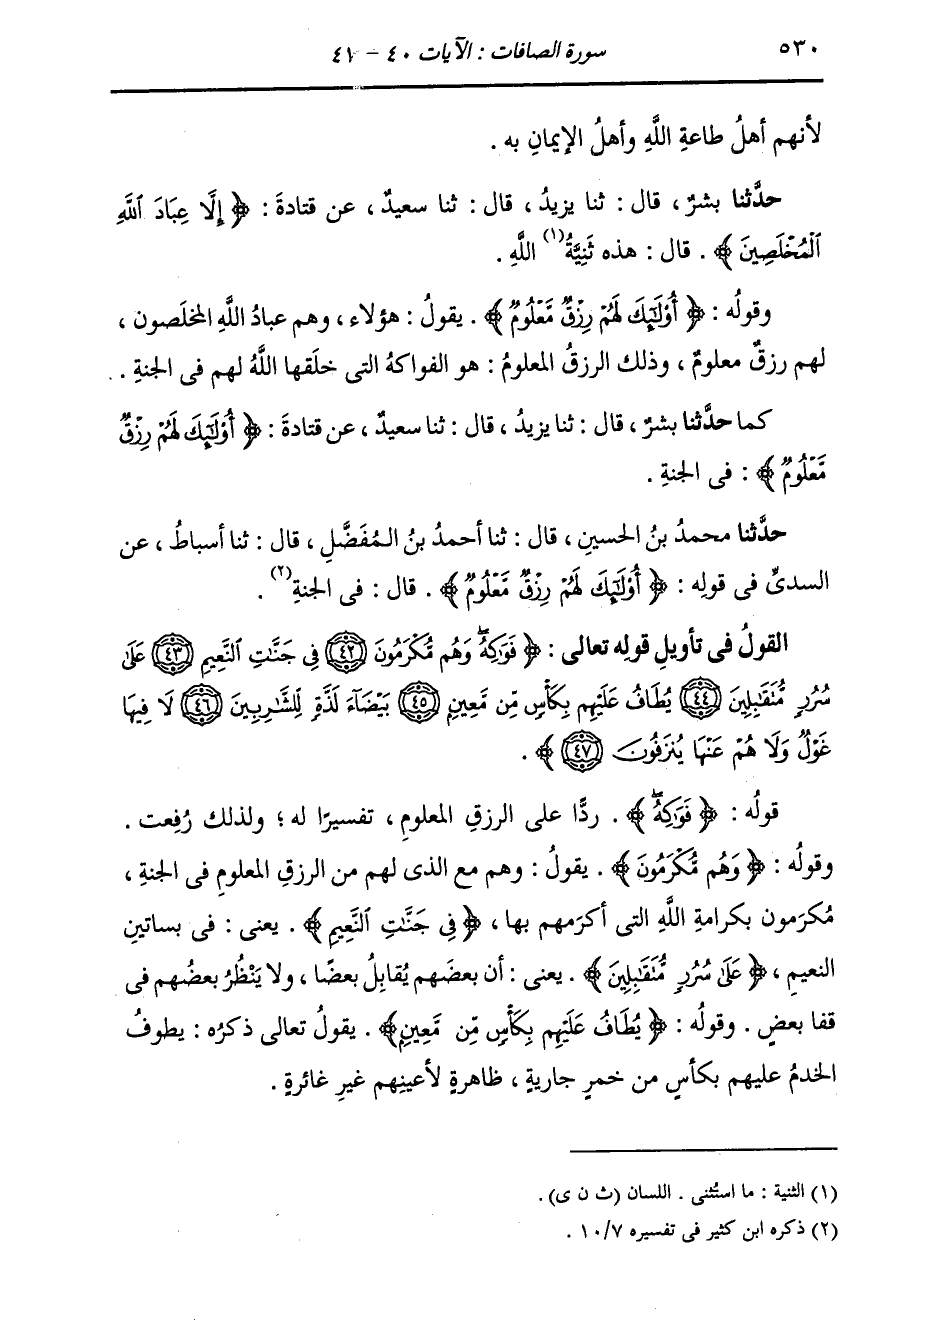 ٥٣٠ سورة الصافات : الآيات ٤٠ - ٤١
لأنهم أهلُ طاعةِ اللَّهِ وأهلُ الإيمانِ به .
حدَّثنا بشرٌ ، قال : ثنا يزيدُ ، قال : ثنا سعيدٌ ، عن قتادةَ : ﴿ إِلَّا عِبَادَ ٱللَّهِ
ٱلْمُخْلَصِينَ ﴾ . قال : هذه ثَنِيَّةُ(١) اللَّهِ .
وقولُه : ﴿ أُوْلَٰٓئِكَ لَهُمْ رِزْقٌ مَّعْلُومٌ ﴾ . يقولُ : هؤلاء ، وهم عبادُ اللَّهِ المخلَصون ،
لهم رزقٌ معلومٌ ، وذلك الرزقُ المعلومُ : هو الفواكهُ التى خلَقها اللَّهُ لهم فى الجنةِ .
كما حدَّثنا بشرٌ ، قال : ثنا يزيدُ ، قال : ثنا سعيدٌ ، عن قتادةَ : ﴿ أُوْلَٰٓئِكَ لَهُمْ رِزْقٌ
مَّعْلُومٌ ﴾ : فى الجنةِ .
حدَّثنا محمدُ بنُ الحسينِ ، قال : ثنا أحمدُ بنُ المُفَضَّلِ ، قال : ثنا أسباطُ ، عن
السدىِّ فى قولِه : ﴿ أُوْلَٰٓئِكَ لَهُمْ رِزْقٌ مَّعْلُومٌ ﴾ . قال : فى الجنةِ(٢) .
القولُ فى تأويلِ قولِه تعالى : ﴿ فَوَٰكِهُ ۖ وَهُم مُّكْرَمُونَ ٤٢ فِى جَنَّٰتِ ٱلنَّعِيمِ ٤٣ عَلَىٰ
سُرُرٍ مُّتَقَٰبِلِينَ ٤٤ يُطَافُ عَلَيْهِم بِكَأْسٍ مِّن مَّعِينٍۭ ٤٥ بَيْضَآءَ لَذَّةٍ لِّلشَّٰرِبِينَ ٤٦ لَا فِيهَا
غَوْلٌ وَلَا هُمْ عَنْهَا يُنزَفُونَ ٤٧ ﴾ .
قولُه : ﴿ فَوَٰكِهُ ۖ ﴾ . ردًّا على الرزقِ المعلومِ ، تفسيرًا له ؛ ولذلك رُفِعت .
وقولُه : ﴿ وَهُم مُّكْرَمُونَ ﴾ . يقولُ : وهم مع الذى لهم من الرزقِ المعلومِ فى الجنةِ ،
مُكرَمون بكرامةِ اللَّهِ التى أكرَمهم بها ، ﴿ فِى جَنَّٰتِ ٱلنَّعِيمِ ﴾ . يعنى : فى بساتينِ
النعيمِ ، ﴿ عَلَىٰ سُرُرٍ مُّتَقَٰبِلِينَ ﴾ . يعنى : أن بعضَهم يُقابِلُ بعضًا ، ولا يَنْظُرُ بعضُهم فى
قفا بعضٍ . وقولُه : ﴿ يُطَافُ عَلَيْهِم بِكَأْسٍ مِّن مَّعِينٍۭ ﴾ . يقولُ تعالى ذكرُه : يطوفُ
الخدمُ عليهم بكأسٍ من خمرٍ جاريةٍ ، ظاهرةٍ لأعينِهم غيرِ غائرةٍ .
(١) الثنية : ما استُثنى . اللسان (ث ن ى) .
(٢) ذكره ابن كثير فى تفسيره ١٠/٧ .